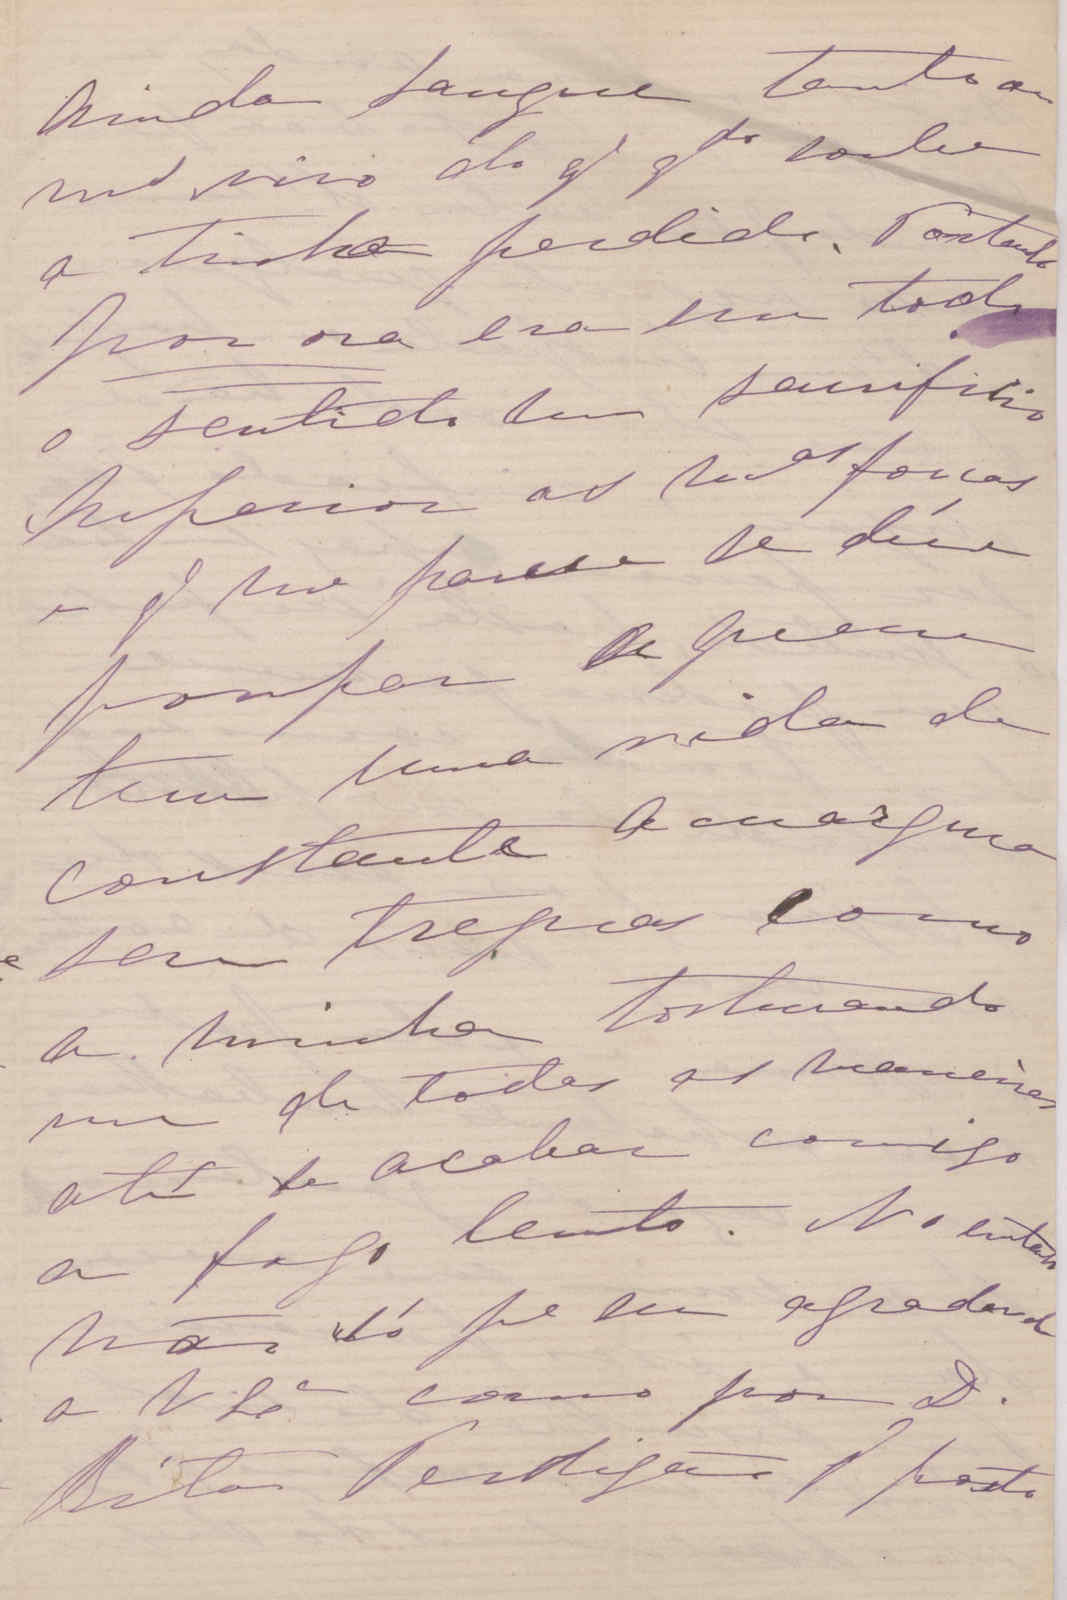 ainda sangue tanto ou
ms vivo do q' qdo soube
a tinha perdido. Portanto
por ora era em todo
o sentido um sacrificio
superior as mas forcas
e q' me parece se deve
poupar a quem
tem uma vida de
constante amargura
sem treguas como
a minha torturando
me de todas as maneiras
até se acabar comigo
a fogo lento. No entanto
não só pe eu agradando
a V Sa como por D.
Rita Perdigão q' posto